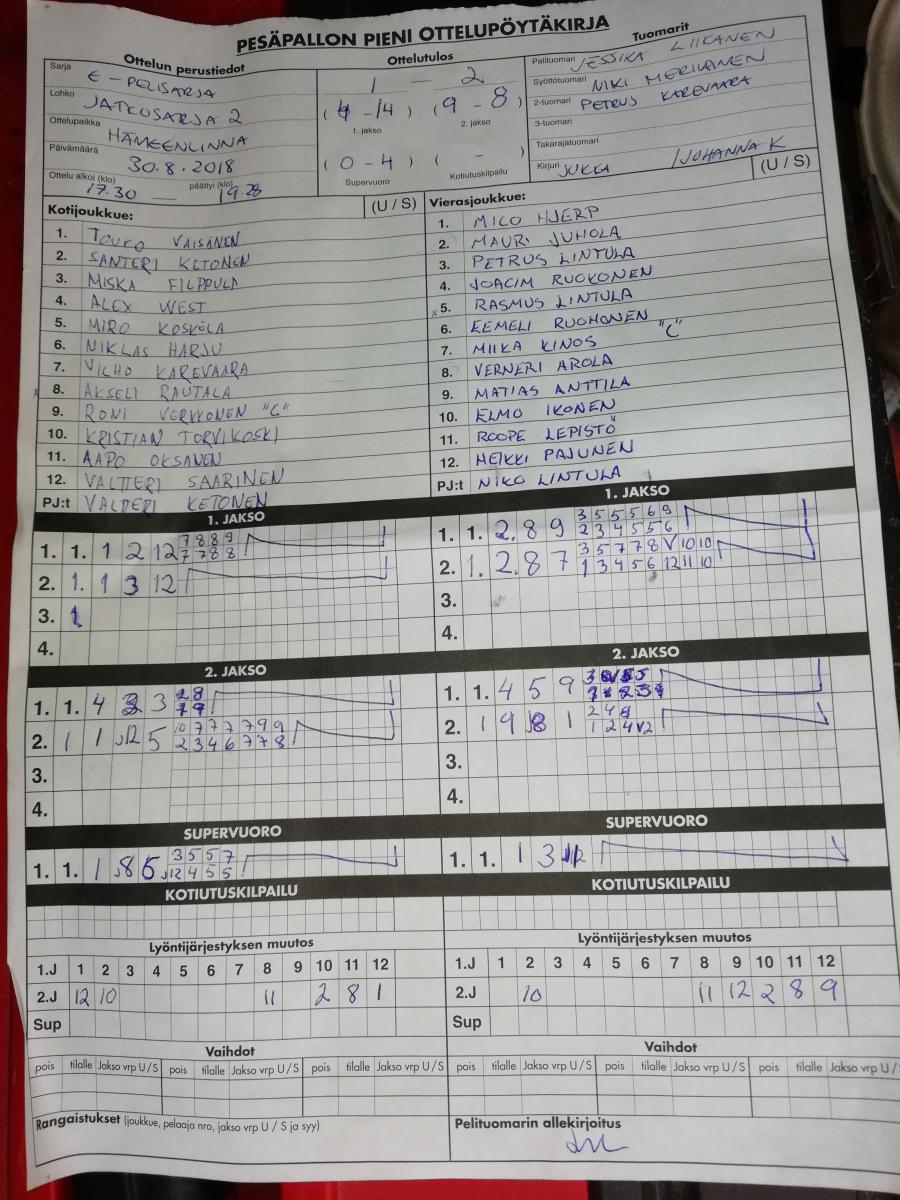 PESÄPALLON PIENI OTTELUPÖYTÄKIRJA
Ottelun perustiedot
Sarja E-PELISARJA
Lohko JATKOSARJA 2
Ottelupaikka HÄMEENLINNA
Päivämäärä 30.8.2018
Ottelu alkoi (klo) 17.30 — päättyi (klo) 19.28
Ottelutulos
1 — 2
(4-14) (9-8)
1. jakso 2. jakso
(0-4) ( - )
Supervuoro Kotiutuskilpailu
Tuomarit
Pelituomari JESSIKA LIIKANEN
Syöttötuomari NIKI MERILAINEN
2-tuomari PETRUS KAREVAARA
3-tuomari
Takarajatuomari
Kirjuri JUKKA /JOHANNA K
Kotijoukkue: (U/S)
1. TOUKO VAISÄNEN
2. SANTERI KETONEN
3. MISKA FILPPULA
4. ALEX WEST
5. MIRO KOSKELA
6. NIKLAS HARJU
7. VILHO KAREVAARA
8. AKSELI RAUTALA
9. RONI VERKKONEN "C"
10. KRISTIAN TORVIKOSKI
11. AAPO OKSANEN
12. VALTTERI SAARINEN
PJ:t VALTTERI KETONEN
Vierasjoukkue: (U/S)
1. MICO HJERP
2. MAURI JUHOLA
3. PETRUS LINTULA
4. JOACIM RUOKONEN
5. RASMUS LINTULA
6. EEMELI RUOHONEN
7. MIIKA KINOS "C"
8. VERNERI AROLA
9. MATIAS ANTTILA
10. ELMO IKONEN
11. ROOPE LEPISTÖ
12. HEIKKI PAJUNEN
PJ:t NIKO LINTULA
1. JAKSO
1. 1. 1 2 12 7 8 8 9
7 7 8 8
2. 1. 1 3 12
3. 1
4.
1. JAKSO
1. 1. 2.8 9 3 5 5 5 6 9
2 3 4 5 5 6
2. 1. 2.8 7 3 5 7 7 8 V 10 10
1 3 4 5 6 12 11 10
3.
4.
2. JAKSO
1. 1. 4 3 3 2 8
7 9
2. 1 1 12 5 10 7 7 7 7 9 9
2 3 4 6 7 7 8
3.
4.
2. JAKSO
1. 1. 4 5 9
2. 1 9 8 1 2 4 8
1 2 4 V2
3.
4.
SUPERVUORO
1. 1. 1 8 5 3 5 5 7
12 4 5 5
SUPERVUORO
1. 1. 1 3 12
KOTIUTUSKILPAILU
KOTIUTUSKILPAILU
Lyöntijärjestyksen muutos
1.J 1 2 3 4 5 6 7 8 9 10 11 12
2.J 12 10 11 2 8 1
Sup
Lyöntijärjestyksen muutos
1.J 1 2 3 4 5 6 7 8 9 10 11 12
2.J 10 11 12 2 8 9
Sup
Vaihdot
pois tilalle Jakso vrp U/S pois tilalle Jakso vrp U/S pois tilalle Jakso vrp U/S
Vaihdot
pois tilalle Jakso vrp U/S pois tilalle Jakso vrp U/S pois tilalle Jakso vrp U/
Rangaistukset (joukkue, pelaaja nro, jakso vrp U / S ja syy)
Pelituomarin allekirjoitus